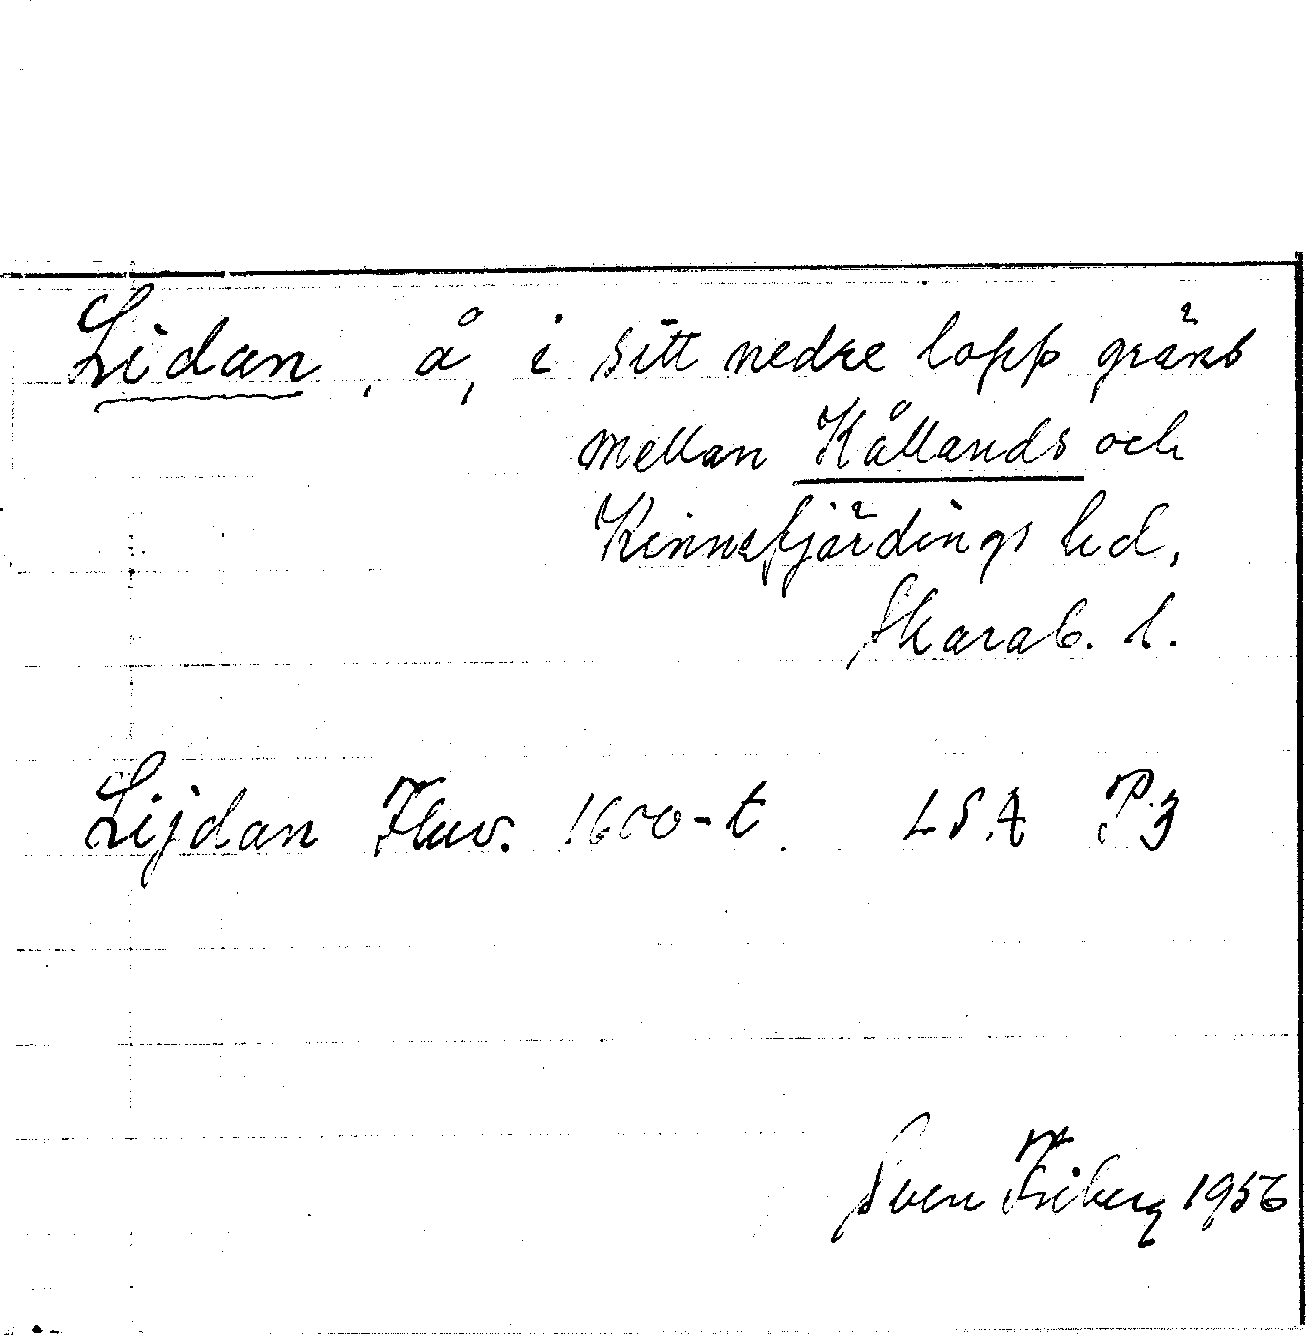 Lidan, å, i sitt nedre lopp gräns
mellan Kållands och
Kinnefjärdings hd,
Skarab. l.
Lijdan Fluv. 1600-t. LSA P3
Sven Friberg 1956